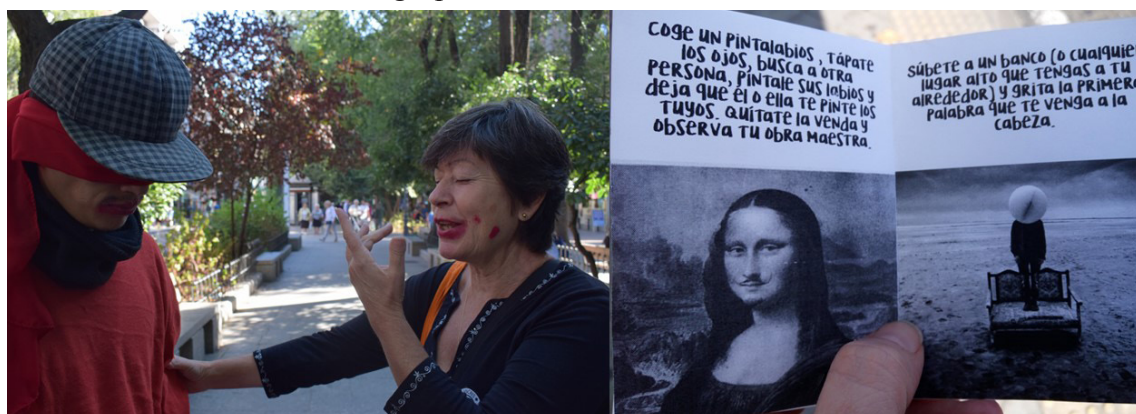 COGE UN PINTALABIOS, TÁPATE
LOS OJOS, BUSCA A OTRA
PERSONA, PÍNTALE SUS LABIOS Y
DEJA QUE ÉL O ELLA TE PINTE LOS
TUYOS. QUÍTATE LA VENDA Y
OBSERVA TU OBRA MAESTRA.
SÚBETE A UN BANCO (O CUALQUIE
LUGAR ALTO QUE TENGAS A TU
ALREDEDOR) Y GRITA LA PRIMERA
PALABRA QUE TE VENGA A LA
CABEZA.